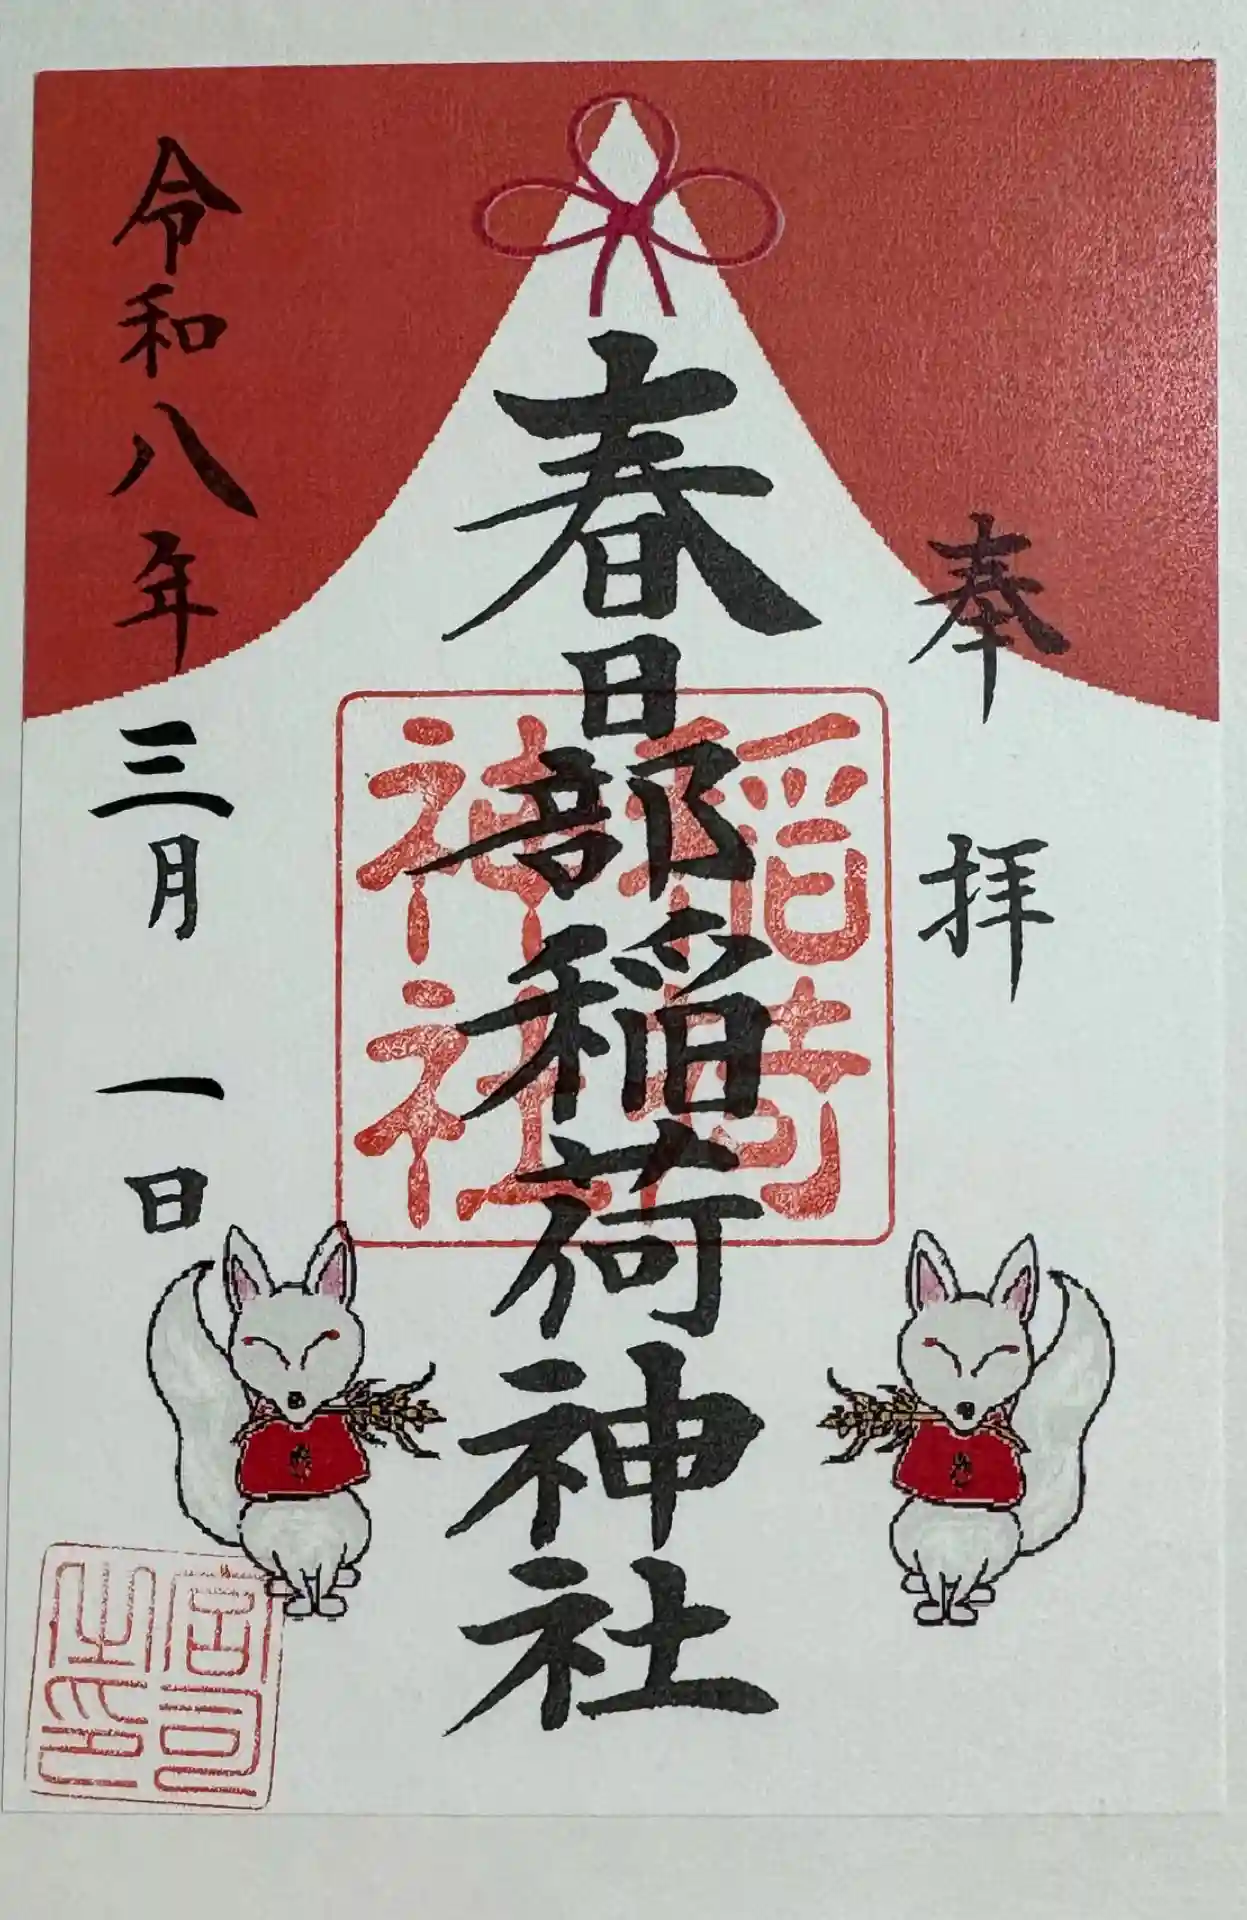 奉拝
春日部稲荷神社
稲荷
神社
令和八年三月一日
宮司
之印